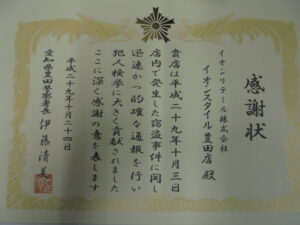 感謝状
イオンリテール株式会社
イオンスタイル豊田店 殿
貴店は平成二十九年十月三日
店内で発生した窃盗事件に関し
迅速かつ的確な通報を行い
犯人検挙に大きく貢献されました
ここに深く感謝の意を表します
平成二十九年十月二十四日
愛知県豊田警察署長 伊藤清美